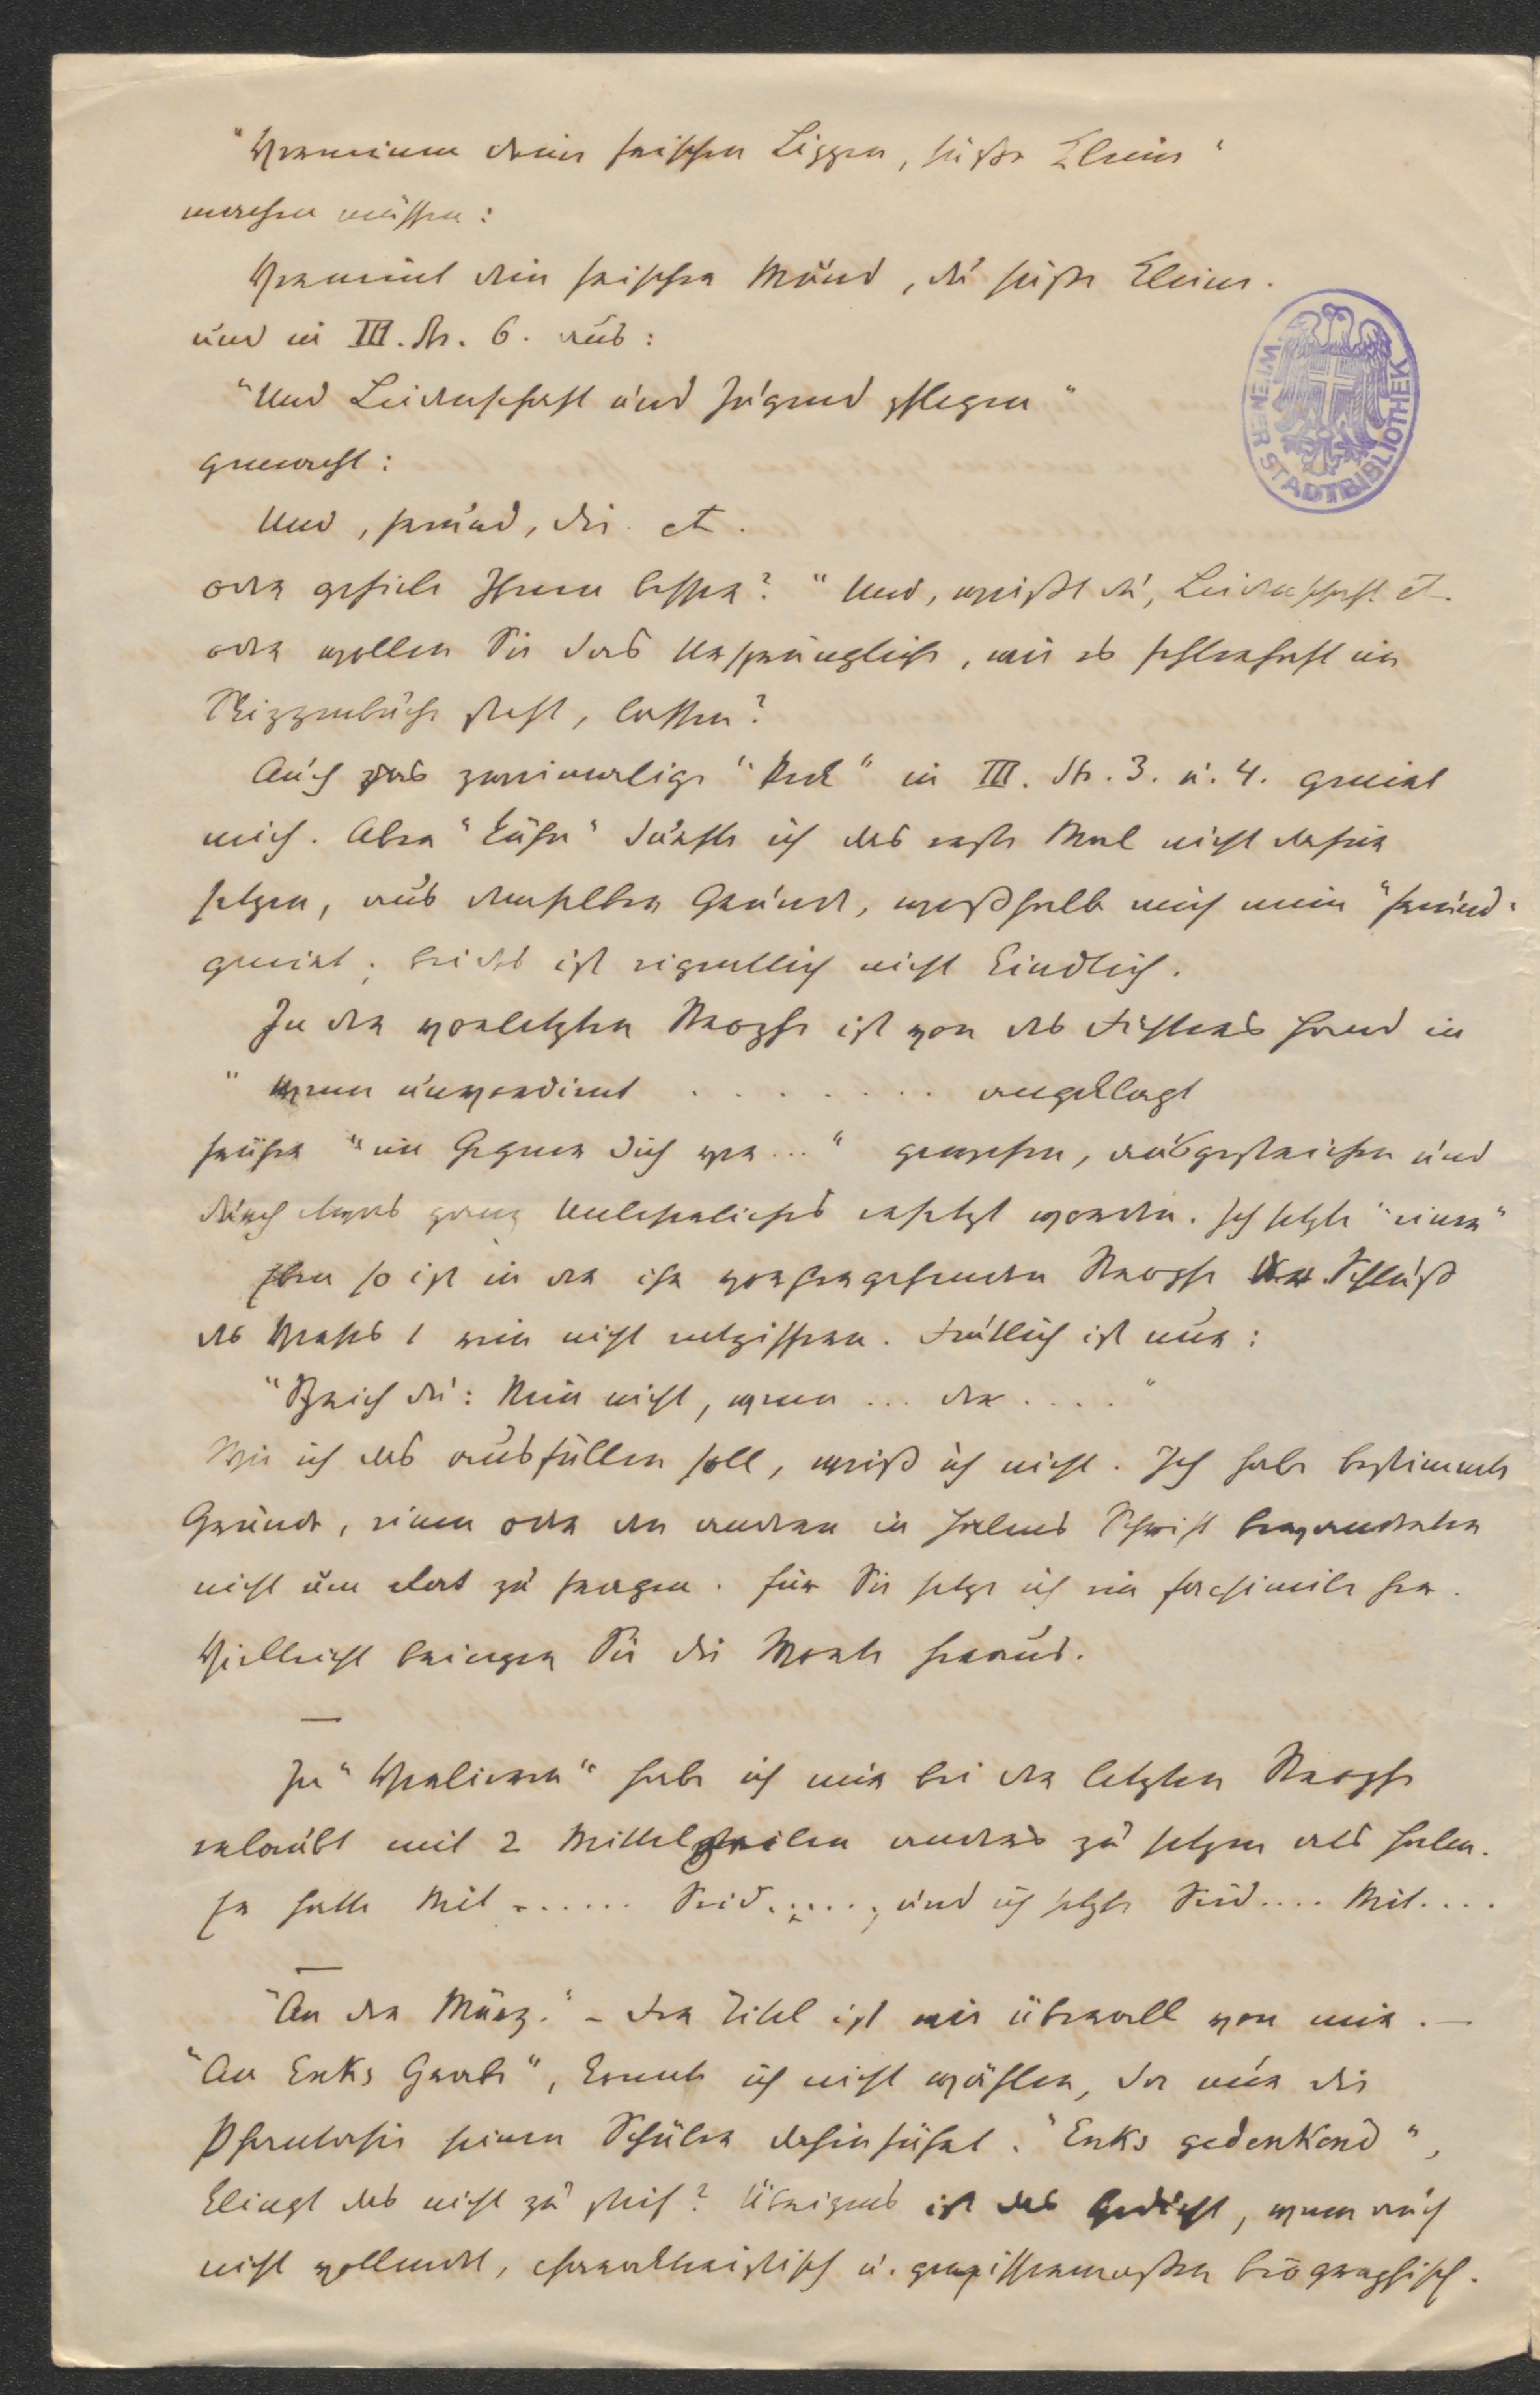 "Vernimm deine frischen Lippen, süße Kleine"
machen müssen:
Vernimmt dein frischer Mund, du süße Kleine.
und in III. Str. 6. aus:
"Und Leidenschaft und Jugend pflegen"
gemacht:
Und, Freund, die et.
oder gefiele Ihnen besser? "Und, weißt du, Leidenschaft et.
oder wollen Sie das Ursprüngliche, wie es fehlerhaft im
Skizzenbuche steht, lassen?
Auch das zweimalige "keck" in III. Str. 3. u. 4. geniert
mich. Aber "kühn" durfte ich das erste Mal nicht dafür
setzen, aus demselben Grunde, weßhalb mich mein "Freund"
geniert; beides ist eigentlich nicht kindlich.
In der vorletzten Strophe ist von des Dichters Hand in
"Wenn unverdient . . . . . . . . angeklagt
früher "ein Gegner dich wer..." gewesen, ausgestrichen und
durch etwas ganz Unleserliches ersetzt worden. Ich setzte "einer"
Eben so ist in der ihr vorhergehenden Strophe der Schluß
des Verses 1 rein nicht entziffern. Deutlich ist nur:
"Sprich du: Nein nicht, wenn ... der ...."
Wie ich das ausfüllen soll, weiß ich nicht. Ich habe bestimmte
Gründe, einen oder den anderen in Halms Schrift Bewanderten
nicht um Rat zu fragen. Für Sie setze ich ein facsimile her.
Vielleicht bringen Sie die Worte heraus.
Zu "Verlieren" habe ich mir bei der letzten Strophe
erlaubt mit 2 Mittelzeilen anders zu setzen als Halm.
Er hatte Mit ...... Seid ....., und ich setzte Seid .... Mit....
"An der März." – Der Titel ist wie überall von mir. –
"An Enks Grabe", konnte ich nicht wählen, da nur die
Phantasie seinen Schüler dahinführt. "Enks gedenkend",
klingt das nicht zu steif? Übrigens ist das Gedicht, wenn auch
nicht vollendet, charakteristisch u. gewissermaßen biographisch.
WIENER STADTBIBLIOTHEK